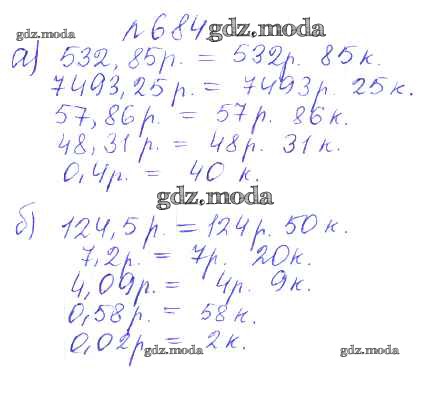 №684 gdz.moda
gdz.moda
а) 532,85р. = 532р. 85к.
7493,25р. = 7493р. 25к.
57,86р. = 57р. 86к.
48,31р. = 48р. 31к.
0,4р. = 40к.
gdz.moda
б) 124,5р. = 124р. 50к.
7,2р. = 7р. 20к.
4,09р. = 4р. 9к.
0,58р. = 58к.
0,02р. = 2к.
gdz.moda gdz.moda